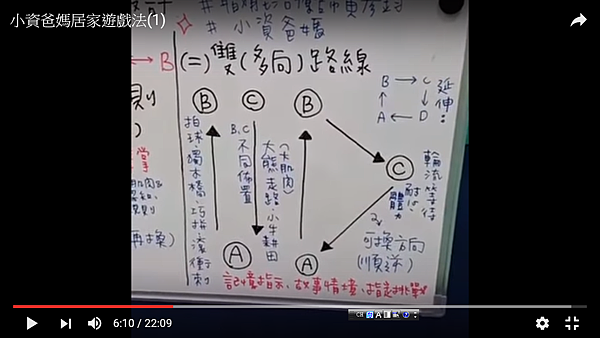 小資爸媽居家遊戲法(1)
# 小資爸媽
B
(二)雙(多向)路線
B
C
B
B → C
↑ ↓
A ← D
延伸:
拍球、獨木橋、巧拼滾、衝刺
B,C
不同佈置
(大肌肉)
大熊走路、小牛耕田
C
輪流等待
耐心、體力
可換方向
(順逆)
A
A
記憶指示、故事情境、指定挑戰
再換)
6:10 / 22:09
CH